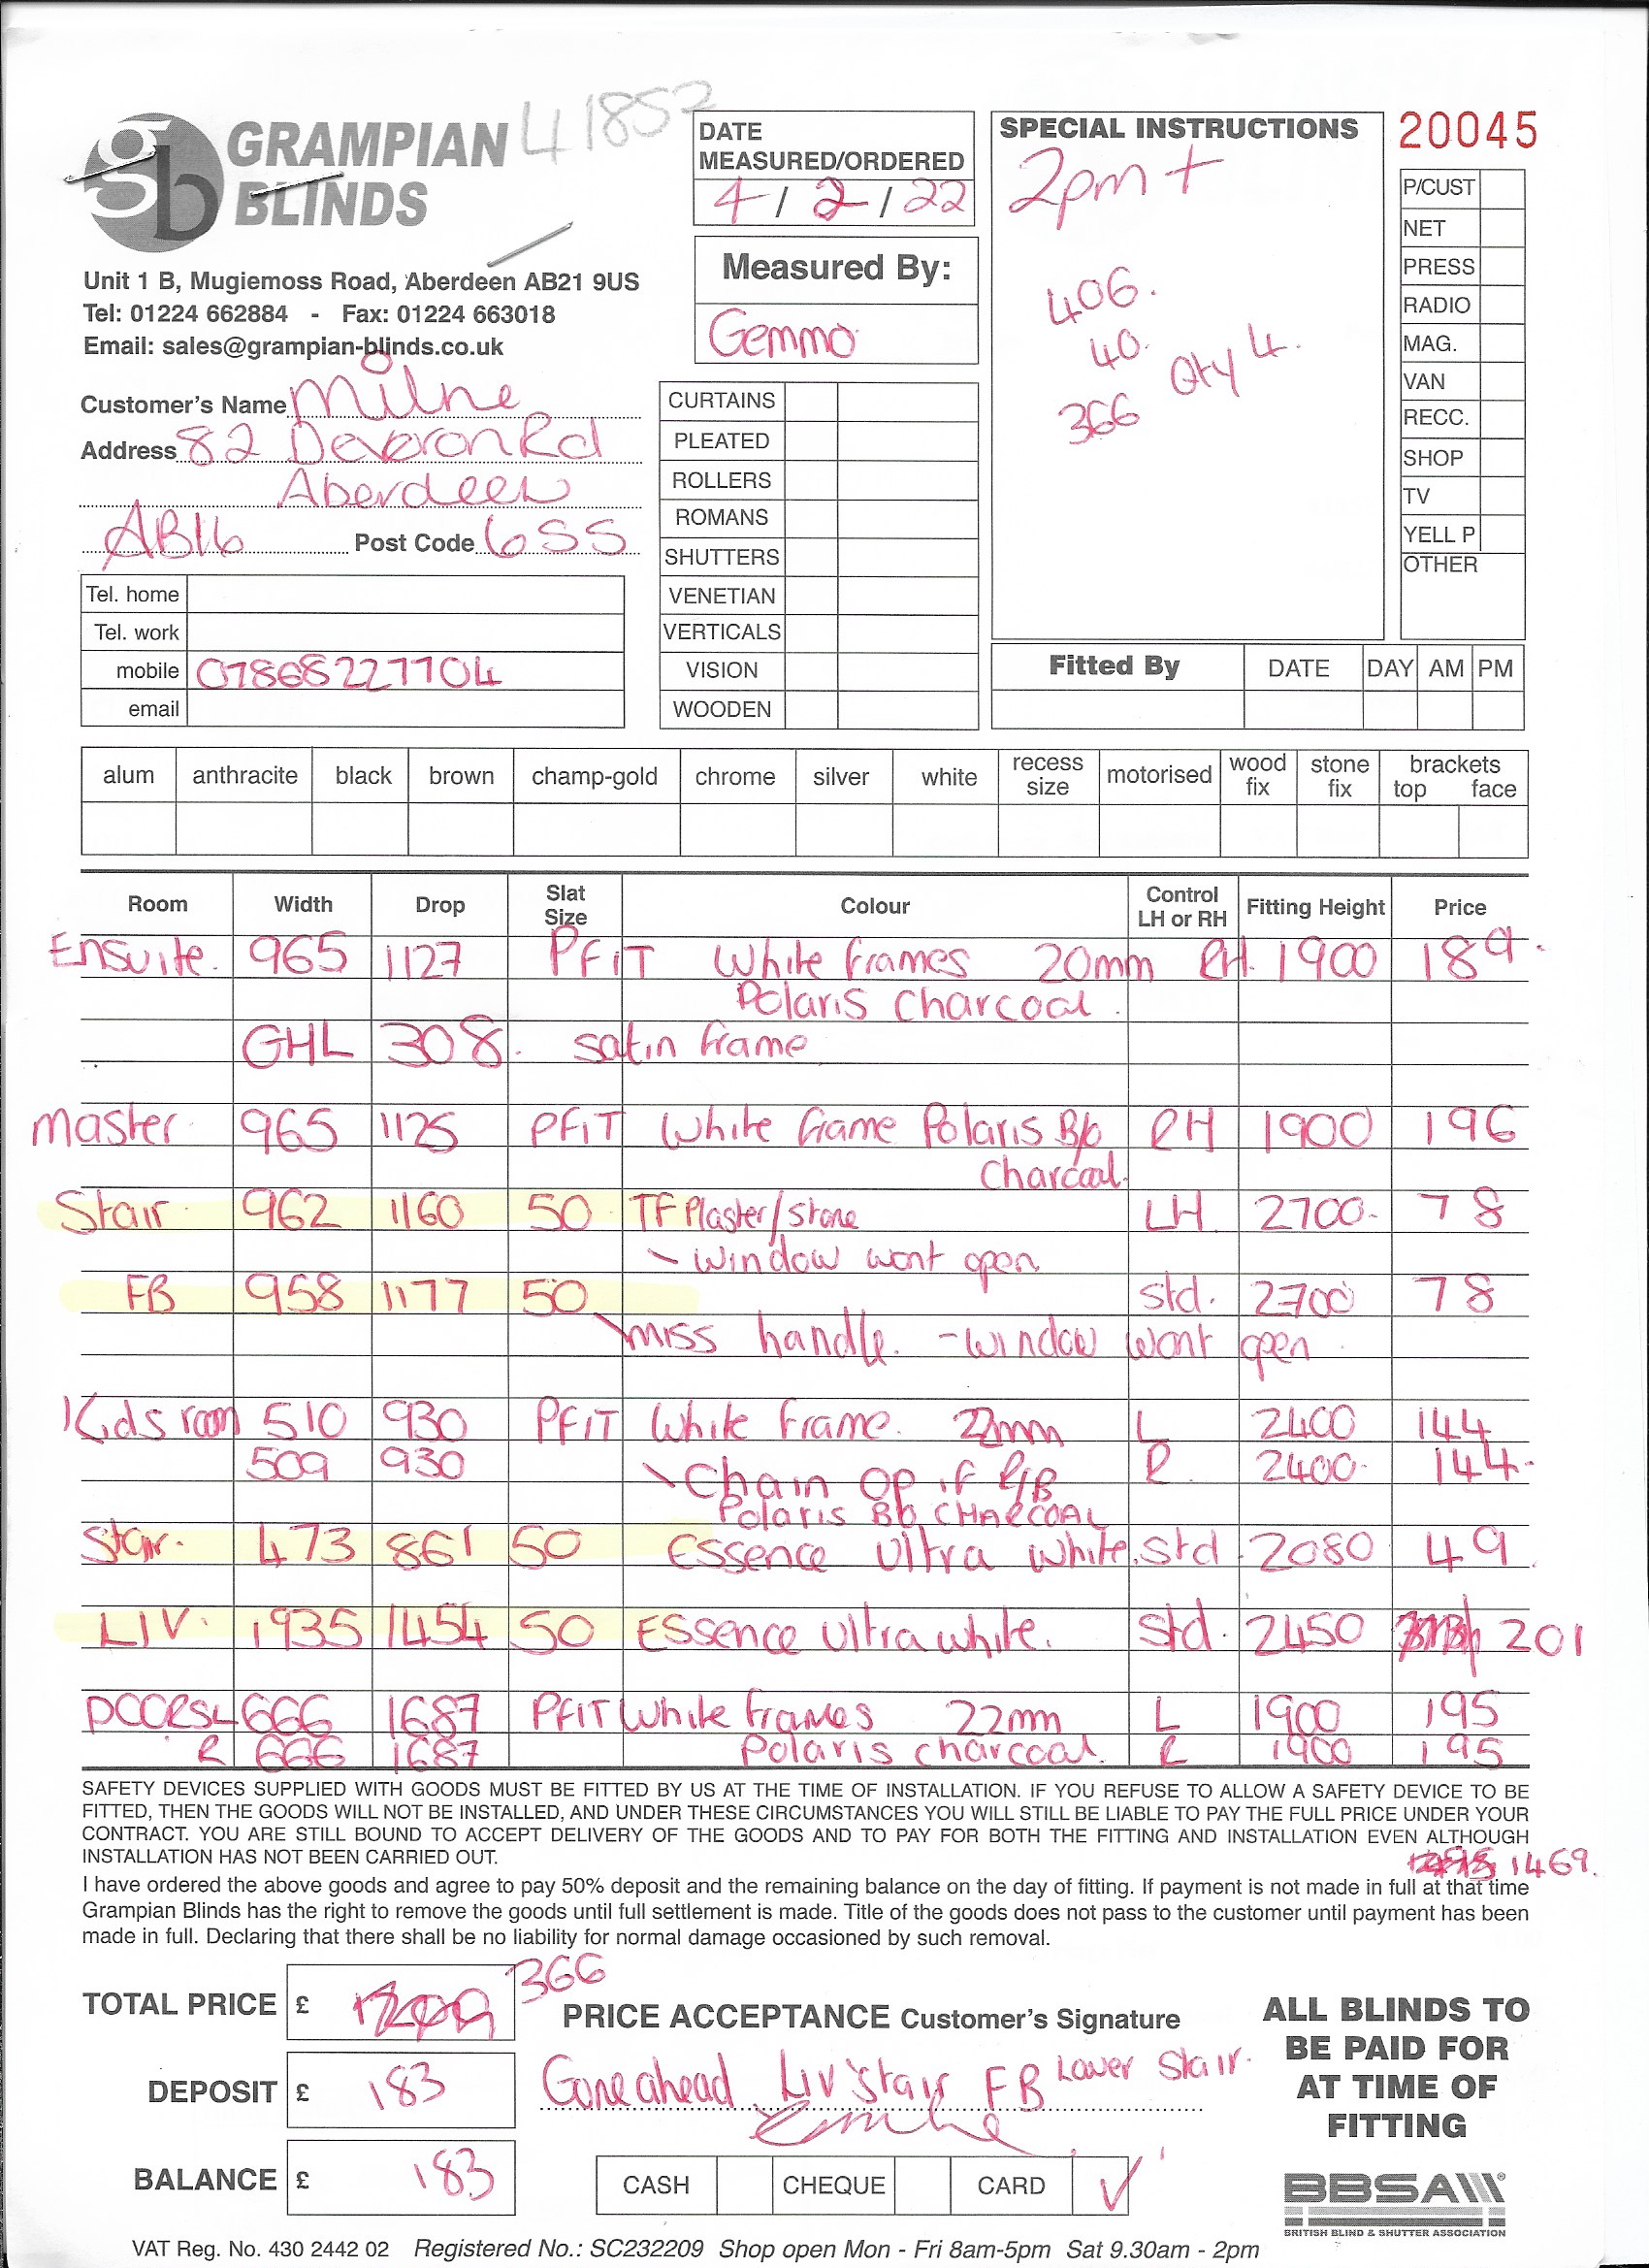 41852
GRAMPIAN
BLINDS
gb
Unit 1 B, Mugiemoss Road, Aberdeen AB21 9US
Tel: 01224 662884 - Fax: 01224 663018
Email: sales@grampian-blinds.co.uk
Customer's Name Milne
Address 82 Deveron Rd
Aberdeen
AB16 Post Code 6SS
Tel. home
Tel. work
mobile 07868227704
email
DATE
MEASURED/ORDERED
4/2/22
Measured By:
Gemma
CURTAINS
PLEATED
ROLLERS
ROMANS
SHUTTERS
VENETIAN
VERTICALS
VISION
WOODEN
SPECIAL INSTRUCTIONS
2pm +
406.
40.
366 Qty 4.
20045
P/CUST
NET
PRESS
RADIO
MAG.
VAN
RECC.
SHOP
TV
YELL P
OTHER
Fitted By DATE DAY AM PM
alum anthracite black brown champ-gold chrome silver white recess size motorised wood fix stone fix brackets top face
Room Width Drop Slat Size Colour Control LH or RH Fitting Height Price
Ensuite. 965 1127 PFiT White frames 20mm RH. 1900 189.
Polaris Charcoal.
GHL 308. satin frame
Master 965 1125 PFiT White frame Polaris B/o RH 1900 196
Charcoal.
Stair 962 1160 50 TF Plaster/stone LH 2700- 78
- window wont open
FB 958 1177 50 std. 2700 78
miss handle. - window wont open
Kids room 510 930 PFiT White Frame. 22mm L 2400 144
509 930 - Chain Op if P/B R 2400- 144-
Polaris B/o CHARCOAL
Stair. 473 861 50 Essence Ultra White. std. 2080 49
LIV. 1935 1454 50 Essence Ultra white. std. 2450 201
DOORS L 666 1687 PFiT White frames 22mm L 1900 195
R 666 1687 Polaris charcoal. R 1900 195
SAFETY DEVICES SUPPLIED WITH GOODS MUST BE FITTED BY US AT THE TIME OF INSTALLATION. IF YOU REFUSE TO ALLOW A SAFETY DEVICE TO BE
FITTED, THEN THE GOODS WILL NOT BE INSTALLED, AND UNDER THESE CIRCUMSTANCES YOU WILL STILL BE LIABLE TO PAY THE FULL PRICE UNDER YOUR
CONTRACT. YOU ARE STILL BOUND TO ACCEPT DELIVERY OF THE GOODS AND TO PAY FOR BOTH THE FITTING AND INSTALLATION EVEN ALTHOUGH
INSTALLATION HAS NOT BEEN CARRIED OUT.
1469.
I have ordered the above goods and agree to pay 50% deposit and the remaining balance on the day of fitting. If payment is not made in full at that time
Grampian Blinds has the right to remove the goods until full settlement is made. Title of the goods does not pass to the customer until payment has been
made in full. Declaring that there shall be no liability for normal damage occasioned by such removal.
TOTAL PRICE £ 366
DEPOSIT £ 183
BALANCE £ 183
PRICE ACCEPTANCE Customer's Signature
Gone ahead Liv Stair FB Lower Stair.
CASH CHEQUE CARD ✓
ALL BLINDS TO
BE PAID FOR
AT TIME OF
FITTING
BBSA
BRITISH BLIND & SHUTTER ASSOCIATION
VAT Reg. No. 430 2442 02 Registered No.: SC232209 Shop open Mon - Fri 8am-5pm Sat 9.30am - 2pm